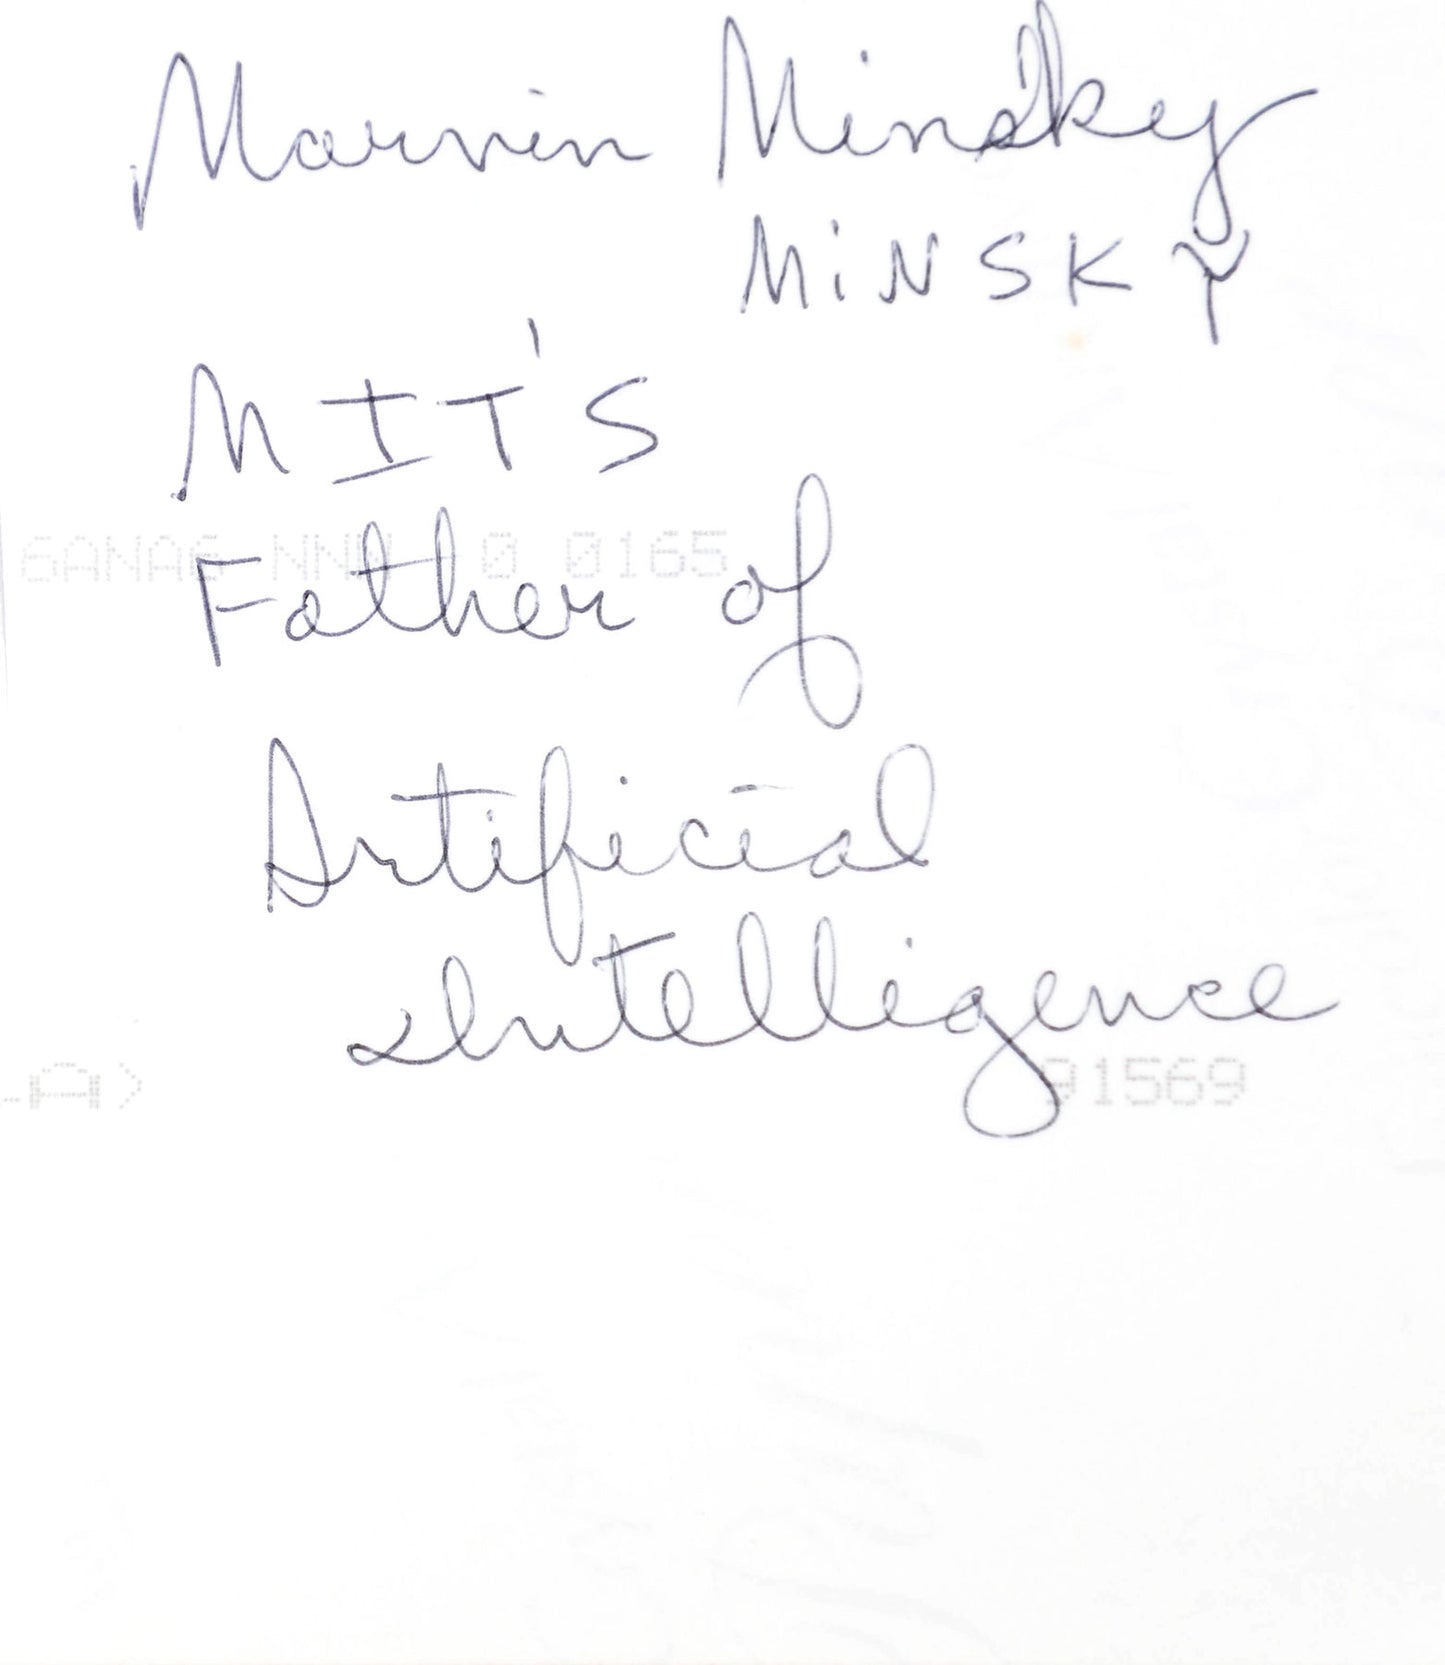 Marvin Minsky
MiNSKY
MIT'S
6ANA6 NNN 0 0165
Father of
Artificial
Intelligence
-A> 91569